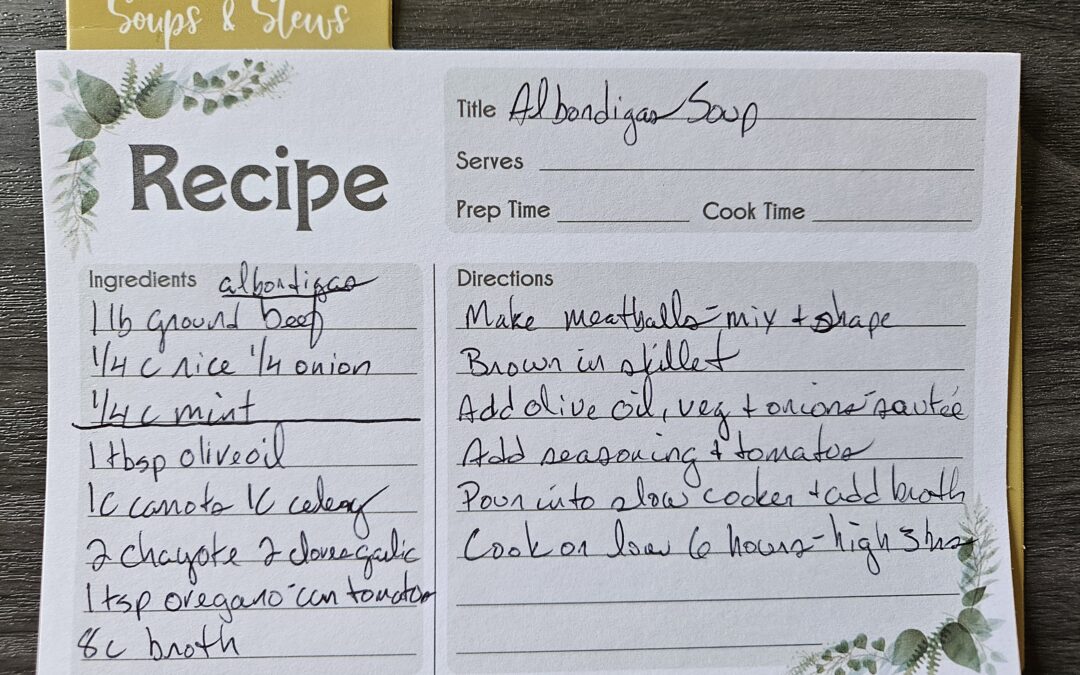 Soups & Stews
Recipe
Title Albondigas Soup
Serves
Prep Time Cook Time
Ingredients albondigas
1 lb ground beef
1/4 c rice 1/4 onion
1/4 c mint
1 tbsp olive oil
1C carrots 1C celery
2 chayote 2 cloves garlic
1 tsp oregano - can tomatoes
8c broth
Directions
Make meatballs - mix + shape
Brown in skillet
Add olive oil, veg + onions - sautée
Add seasoning + tomatos
Pour into slow cooker + add broth
Cook on low 6 hours - high 3 hrs